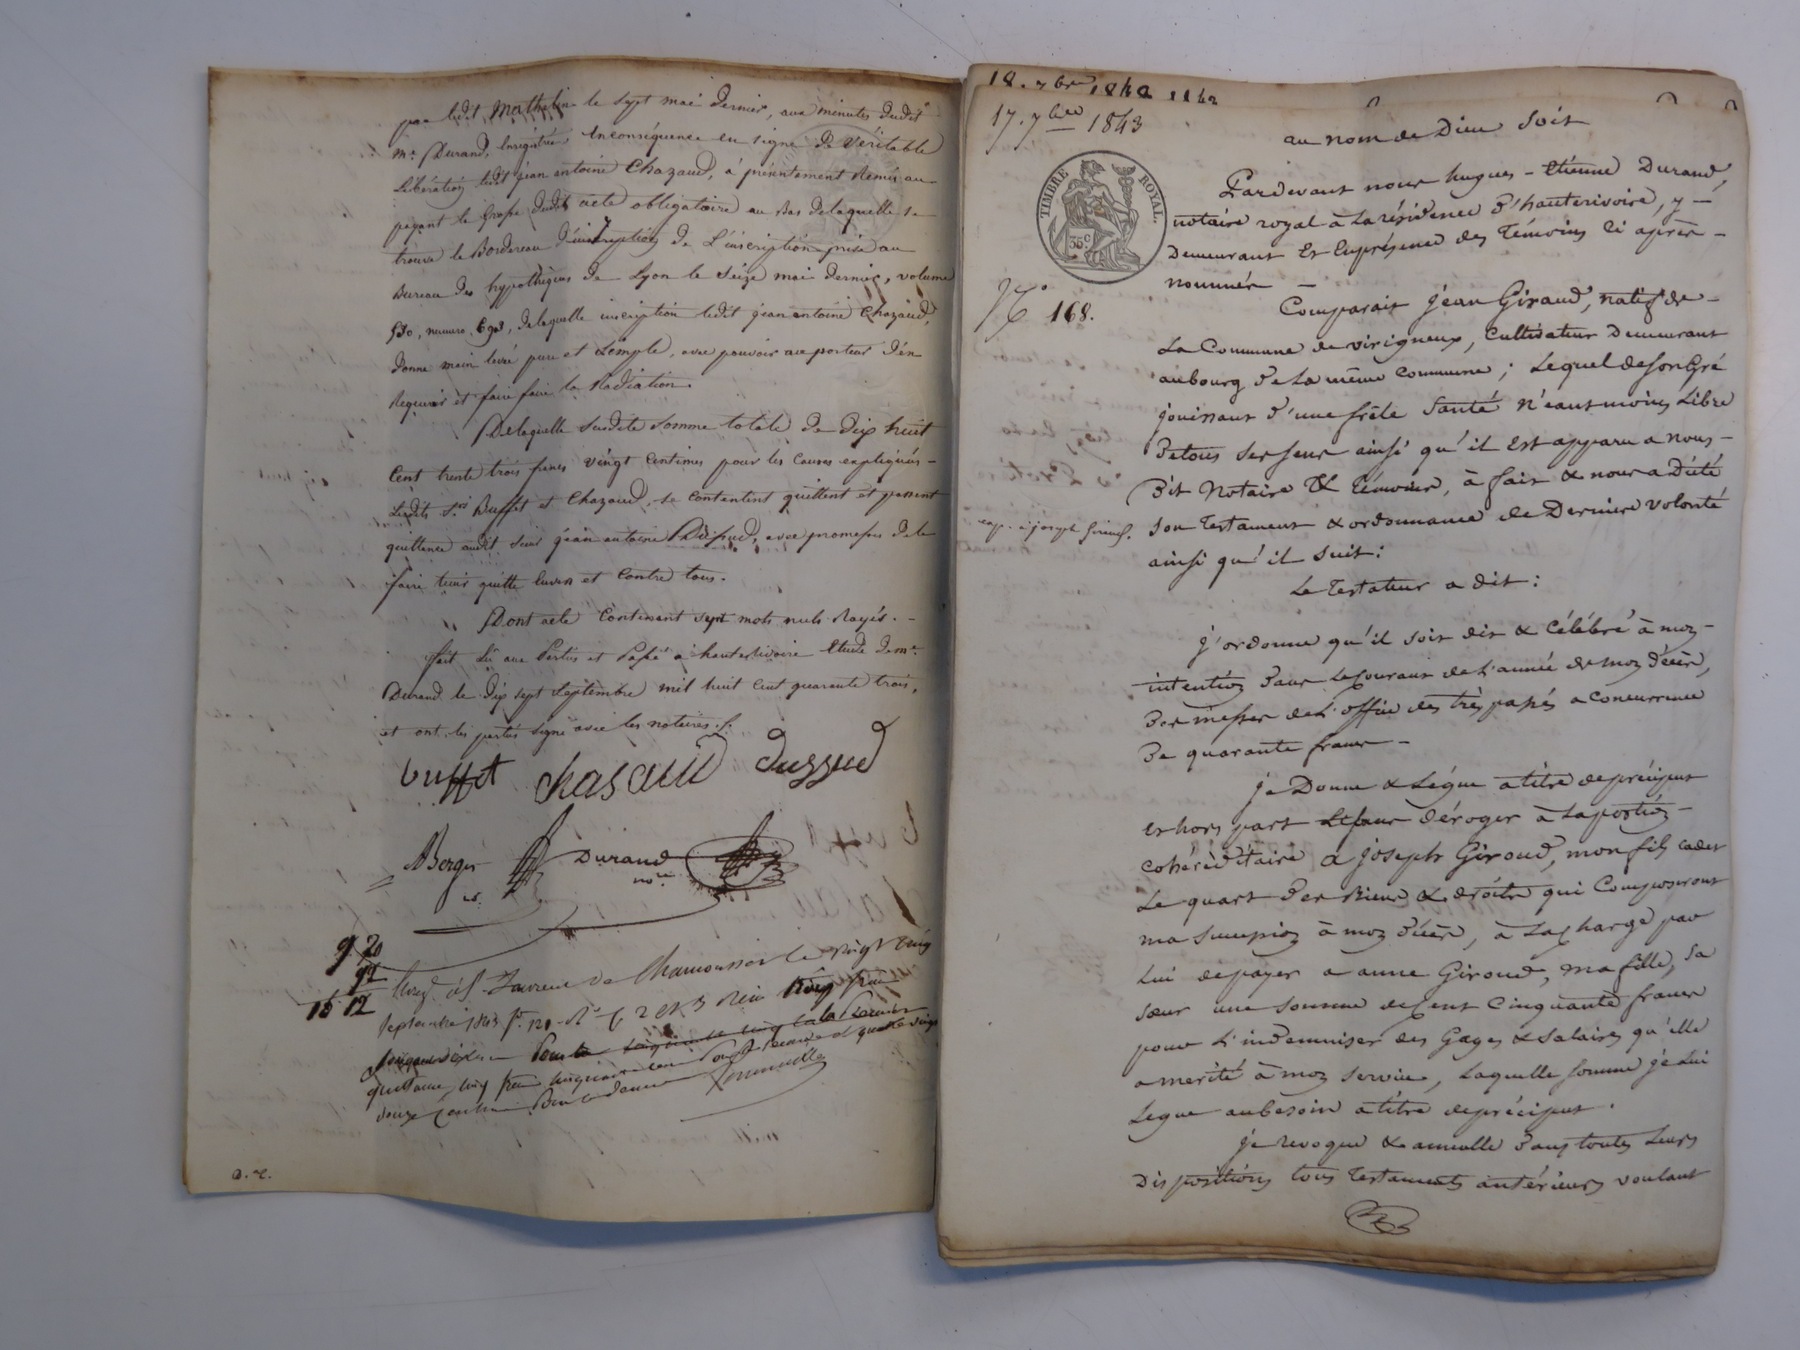 par ledit Mathelin le sept mai dernier, aux minutes dudit
Me. Durand, Enrégistrée. En conséquence en signe de véritable
Libération ledit jean antoine Chazaud, a présentement Remis au
payant le Grosse dudit acte obligatoire au Bas de laquelle se
trouve le Bordereau d'inscription de L'inscription prise au
Bureau des hypothèques de Lyon le seize mai dernier, volume
numéro, de laquelle inscription ledit jean antoine Chazaud,
donne main levée pure et simple, avec pouvoir au porteur d'en
Requerir et faire faire la Radiation.
De laquelle susdite somme totale de dix huit
Cent trente trois francs vingt centimes pour les causes expliquées
Lesdits Srs Buffet et Chazaud, se contentent quittent et passent
quittance audit sieur jean antoine Dussud, avec promesse de le
faire tenir quitte Envers et Contre tous.
Dont acte Contenant sept mots nuls Rayés.
fait Lu aux Parties et Passé à hauterivoire Etude de Me.
Durand le dix sept septembre mil huit cent quarante trois,
et ont les parties signé avec les notaires.
buffet chasaud dussud
Berger Durand
nre
9 20
92
10 12
Enregé à St. Laurent de Chamousset le vingt cinq
septembre 1843 fo. 121 Ro C 2 et 3 Reçu
quittance, cinq francs cinquante cent
douze centimes
18. 7bre 1842 1842
17. 7bre 1843
au nom de Dieu soit
TIMBRE ROYAL.
35c
Pardevant nous hugues - Etienne Durand,
notaire royal à La résidence d'hauterivoire, y
Demeurant Et Enprésence des Témoins Ci après
nommés
No 168.
Comparait jean Giraud, natif de
La Commune de virigneux, Cultivateur Demeurant
aubourg de La même Commune ; Lequel de son Gré
jouissant d'une frêle santé N'eantmoins Libre
de tous ses sens ainsi qu'il Est apparu a nous
dit Notaire & témoins, à fait & nous a Dicté
exp. à joseph Giraud.
son Testament & ordonnance de Derniere volonté
ainsi qu'il suit :
Le Testateur a dit :
j'ordonne qu'il soit dit & Célébré à mon
intention dans Le Courant de L'année de mon décès,
des messes de L'office des trépassés a concurrence
de quarante francs
je Donne & Lègue à titre de préciput
et hors part sans déroger à La portion
cohéréditaire à joseph Giroud, mon fils cadet
Le quart des Biens & droits qui Composeront
ma succession à mon décès, à La charge par
lui de payer a anne Giroud, ma fille, sa
sœur une somme de Cent Cinquante francs
pour L'indemniser des Gages & salaires qu'elle
a mérité à mon service, Laquelle somme je Lui
Legue aubesoin à titre de préciput.
je revoque & annulle dans toutes Leurs
Dispositions tous Testaments antérieurs voulant